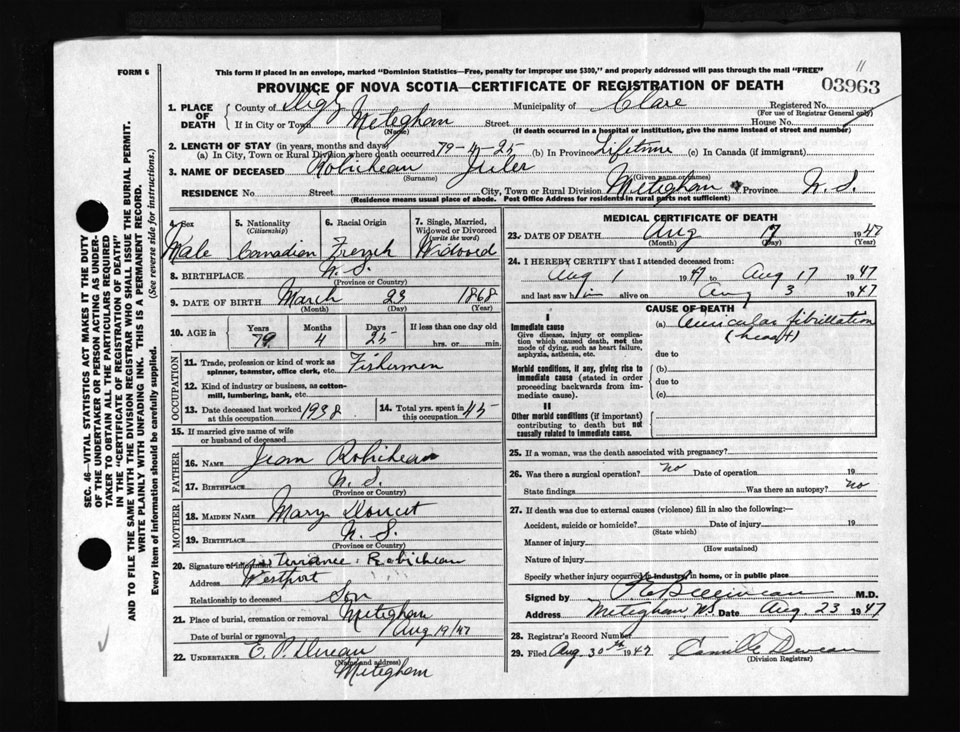 11
FORM 6
This form if placed in an envelope, marked "Dominion Statistics—Free, penalty for improper use $300," and properly addressed will pass through the mail "FREE"
PROVINCE OF NOVA SCOTIA—CERTIFICATE OF REGISTRATION OF DEATH 03963
1. PLACE OF DEATH County of Digby Municipality of Clare Registered No.
(For use of Registrar General only)
If in City or Town Meteghan Street House No.
(Name) (If death occurred in a hospital or institution, give the name instead of street and number)
2. LENGTH OF STAY (in years, months and days)
(a) In City, Town or Rural Division where death occurred 79-4-25 (b) In Province Lifetime (c) In Canada (if immigrant)
3. NAME OF DECEASED Robicheau Jules
(Surname) (Given name or names)
RESIDENCE No. Street City, Town or Rural Division Meteghan Province N.S.
(Residence means usual place of abode. Post Office Address for residents in rural parts not sufficient)
4. Sex 5. Nationality (Citizenship) 6. Racial Origin 7. Single, Married, Widowed or Divorced (write the word)
Male Canadian French Widowed
8. BIRTHPLACE N. S.
(Province or Country)
9. DATE OF BIRTH March 23 1868
(Month) (Day) (Year)
10. AGE in Years Months Days If less than one day old
79 4 25 hrs. or min.
OCCUPATION
11. Trade, profession or kind of work as spinner, teamster, office clerk, etc. Fishermen
12. Kind of industry or business, as cotton-mill, lumbering, bank, etc.
13. Date deceased last worked at this occupation 1938 14. Total yrs. spent in this occupation 45
15. If married give name of wife or husband of deceased
FATHER
16. NAME Jean Robicheau
17. BIRTHPLACE N. S.
(Province or Country)
MOTHER
18. MAIDEN NAME Mary Doucet
19. BIRTHPLACE N. S.
(Province or Country)
20. Signature of Terrance Robicheau
Address Westport
Relationship to deceased Son
21. Place of burial, cremation or removal Meteghan
Date of burial or removal Aug 19/47
22. UNDERTAKER E. P.
(Name and address)
Meteghan
MEDICAL CERTIFICATE OF DEATH
23. DATE OF DEATH Aug 17 1947
(Month) (Day)
24. I HEREBY CERTIFY that I attended deceased from:
Aug 1 1947 to Aug 17 1947
and last saw him alive on Aug 3 1947
CAUSE OF DEATH
I
Immediate cause
Give disease, injury or complication which caused death, not the mode of dying, such as heart failure, asphyxia, asthenia, etc.
(a) auricular fibrillation
(heart)
due to
Morbid conditions, if any, giving rise to immediate cause (stated in order proceeding backwards from immediate cause).
(b)
due to
(c)
II
Other morbid conditions (if important) contributing to death but not causally related to immediate cause.
25. If a woman, was the death associated with pregnancy?
26. Was there a surgical operation? no Date of operation 19
State findings Was there an autopsy? no
27. If death was due to external causes (violence) fill in also the following:—
Accident, suicide or homicide? Date of injury 19
(State which)
Manner of injury
(How sustained)
Nature of injury
Specify whether injury occurred in industry, in home, or in public place
Signed by M.D.
Address Meteghan, N.S. Date Aug. 23 1947
28. Registrar's Record Number
29. Filed Aug. 30th 1947 Camille
(Division Registrar)
SEC. 46—VITAL STATISTICS ACT MAKES IT THE DUTY
OF THE UNDERTAKER OR PERSON ACTING AS UNDER-
TAKER TO OBTAIN ALL THE PARTICULARS REQUIRED
IN THE "CERTIFICATE OF REGISTRATION OF DEATH"
AND TO FILE THE SAME WITH THE DIVISION REGISTRAR WHO SHALL ISSUE THE BURIAL PERMIT.
WRITE PLAINLY WITH UNFADING INK. THIS IS A PERMANENT RECORD.
Every item of information should be carefully supplied. (See reverse side for instructions.)